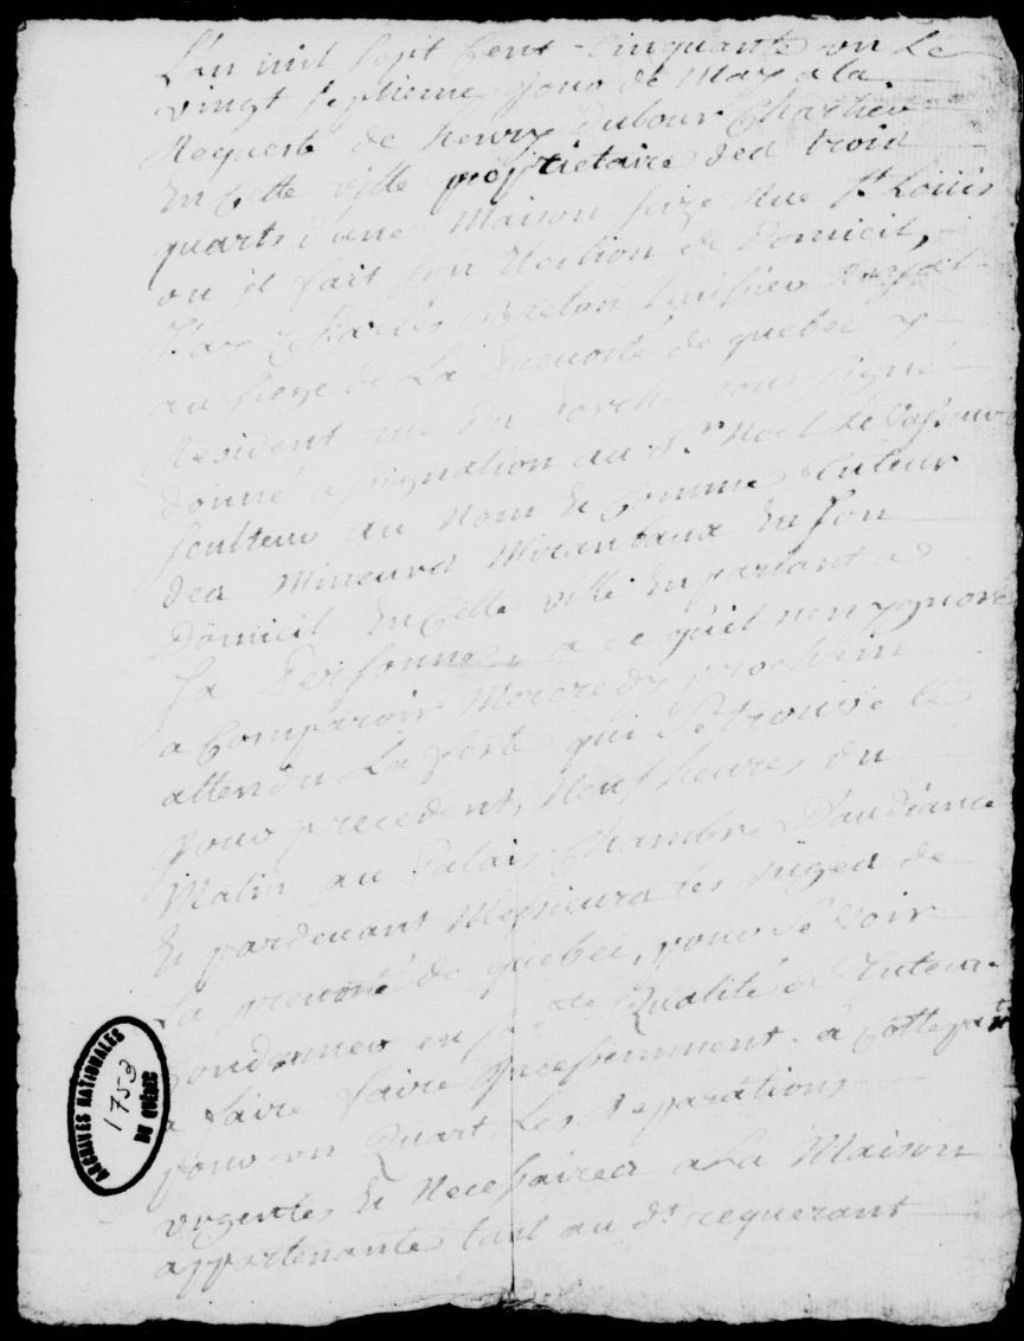 L'an mil sept Cent Cinquante un Le
vingt septieme Jour de May a la
Requeste de henry Dubour Chartier
En Cette ville proprietaire des trois
quarts d'une Maison size Rue St. Loüis
ou jl fait son Election de Domicil,
J'ay Charles Huissier Royal
au siege de La Prevosté de quebec y
Resident rue du porche sous signé
Donné assignation au Sr. Noel Levasseur
sculteur au Nom Et Comme tuteur
des Mineurs En son
Domicil En Cette ville En parlant a
sa Personne a ce qu'il n'en ygnore
a Comparoir Mercredy prochain
attendu La feste qui se trouve le
Jour precedent, Neuf heures du
Matin au Palais Chambre D'audiance
Et pardevant Messieurs les Juges de
La prevosté de quebec, pour se voir
Condamner en sa de. Qualité de Tuteur
a faire faire Jncessamment a Cotte part
pour un Quart Les Reparations
urgentes Et Necessaires a La Maison
appartenante tant au dt. requerant
ARCHIVES NATIONALES
1753
DU QUÉBEC